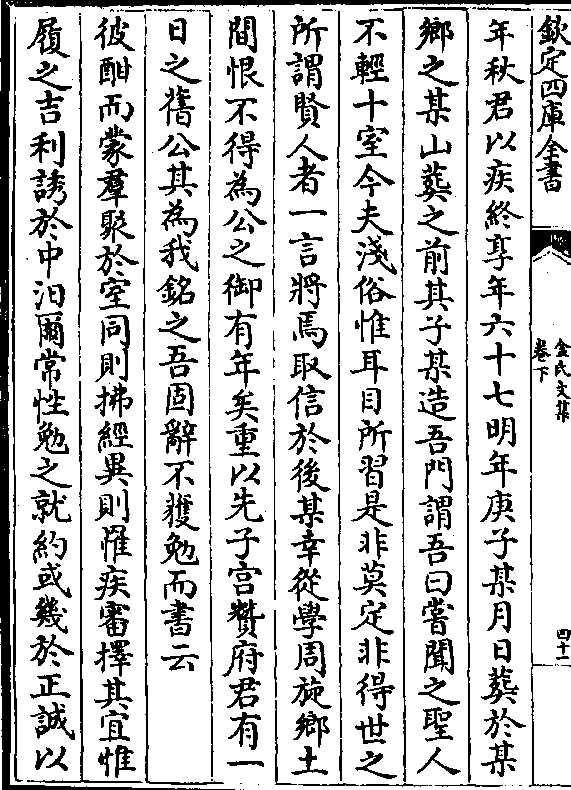 欽定四庫全書
金氏文集
卷下
四十二
年秋君以疾終享年六十七明年庚子某月日葬於某
鄉之某山葬之前其子某造吾門謂吾曰嘗聞之聖人
不輕十室今夫淺俗惟耳目所習是非莫定非得世之
所謂賢人者一言將焉取信於後某幸從學周旋鄉土
間恨不得為公之御有年矣重以先子宫贊府君有一
日之舊公其為我銘之吾固辭不獲勉而書云
彼酣而蒙羣聚於室同則拂經異則罹疾審擇其宜惟
履之吉利誘於中汨爾常性勉之就約或幾於正誠以